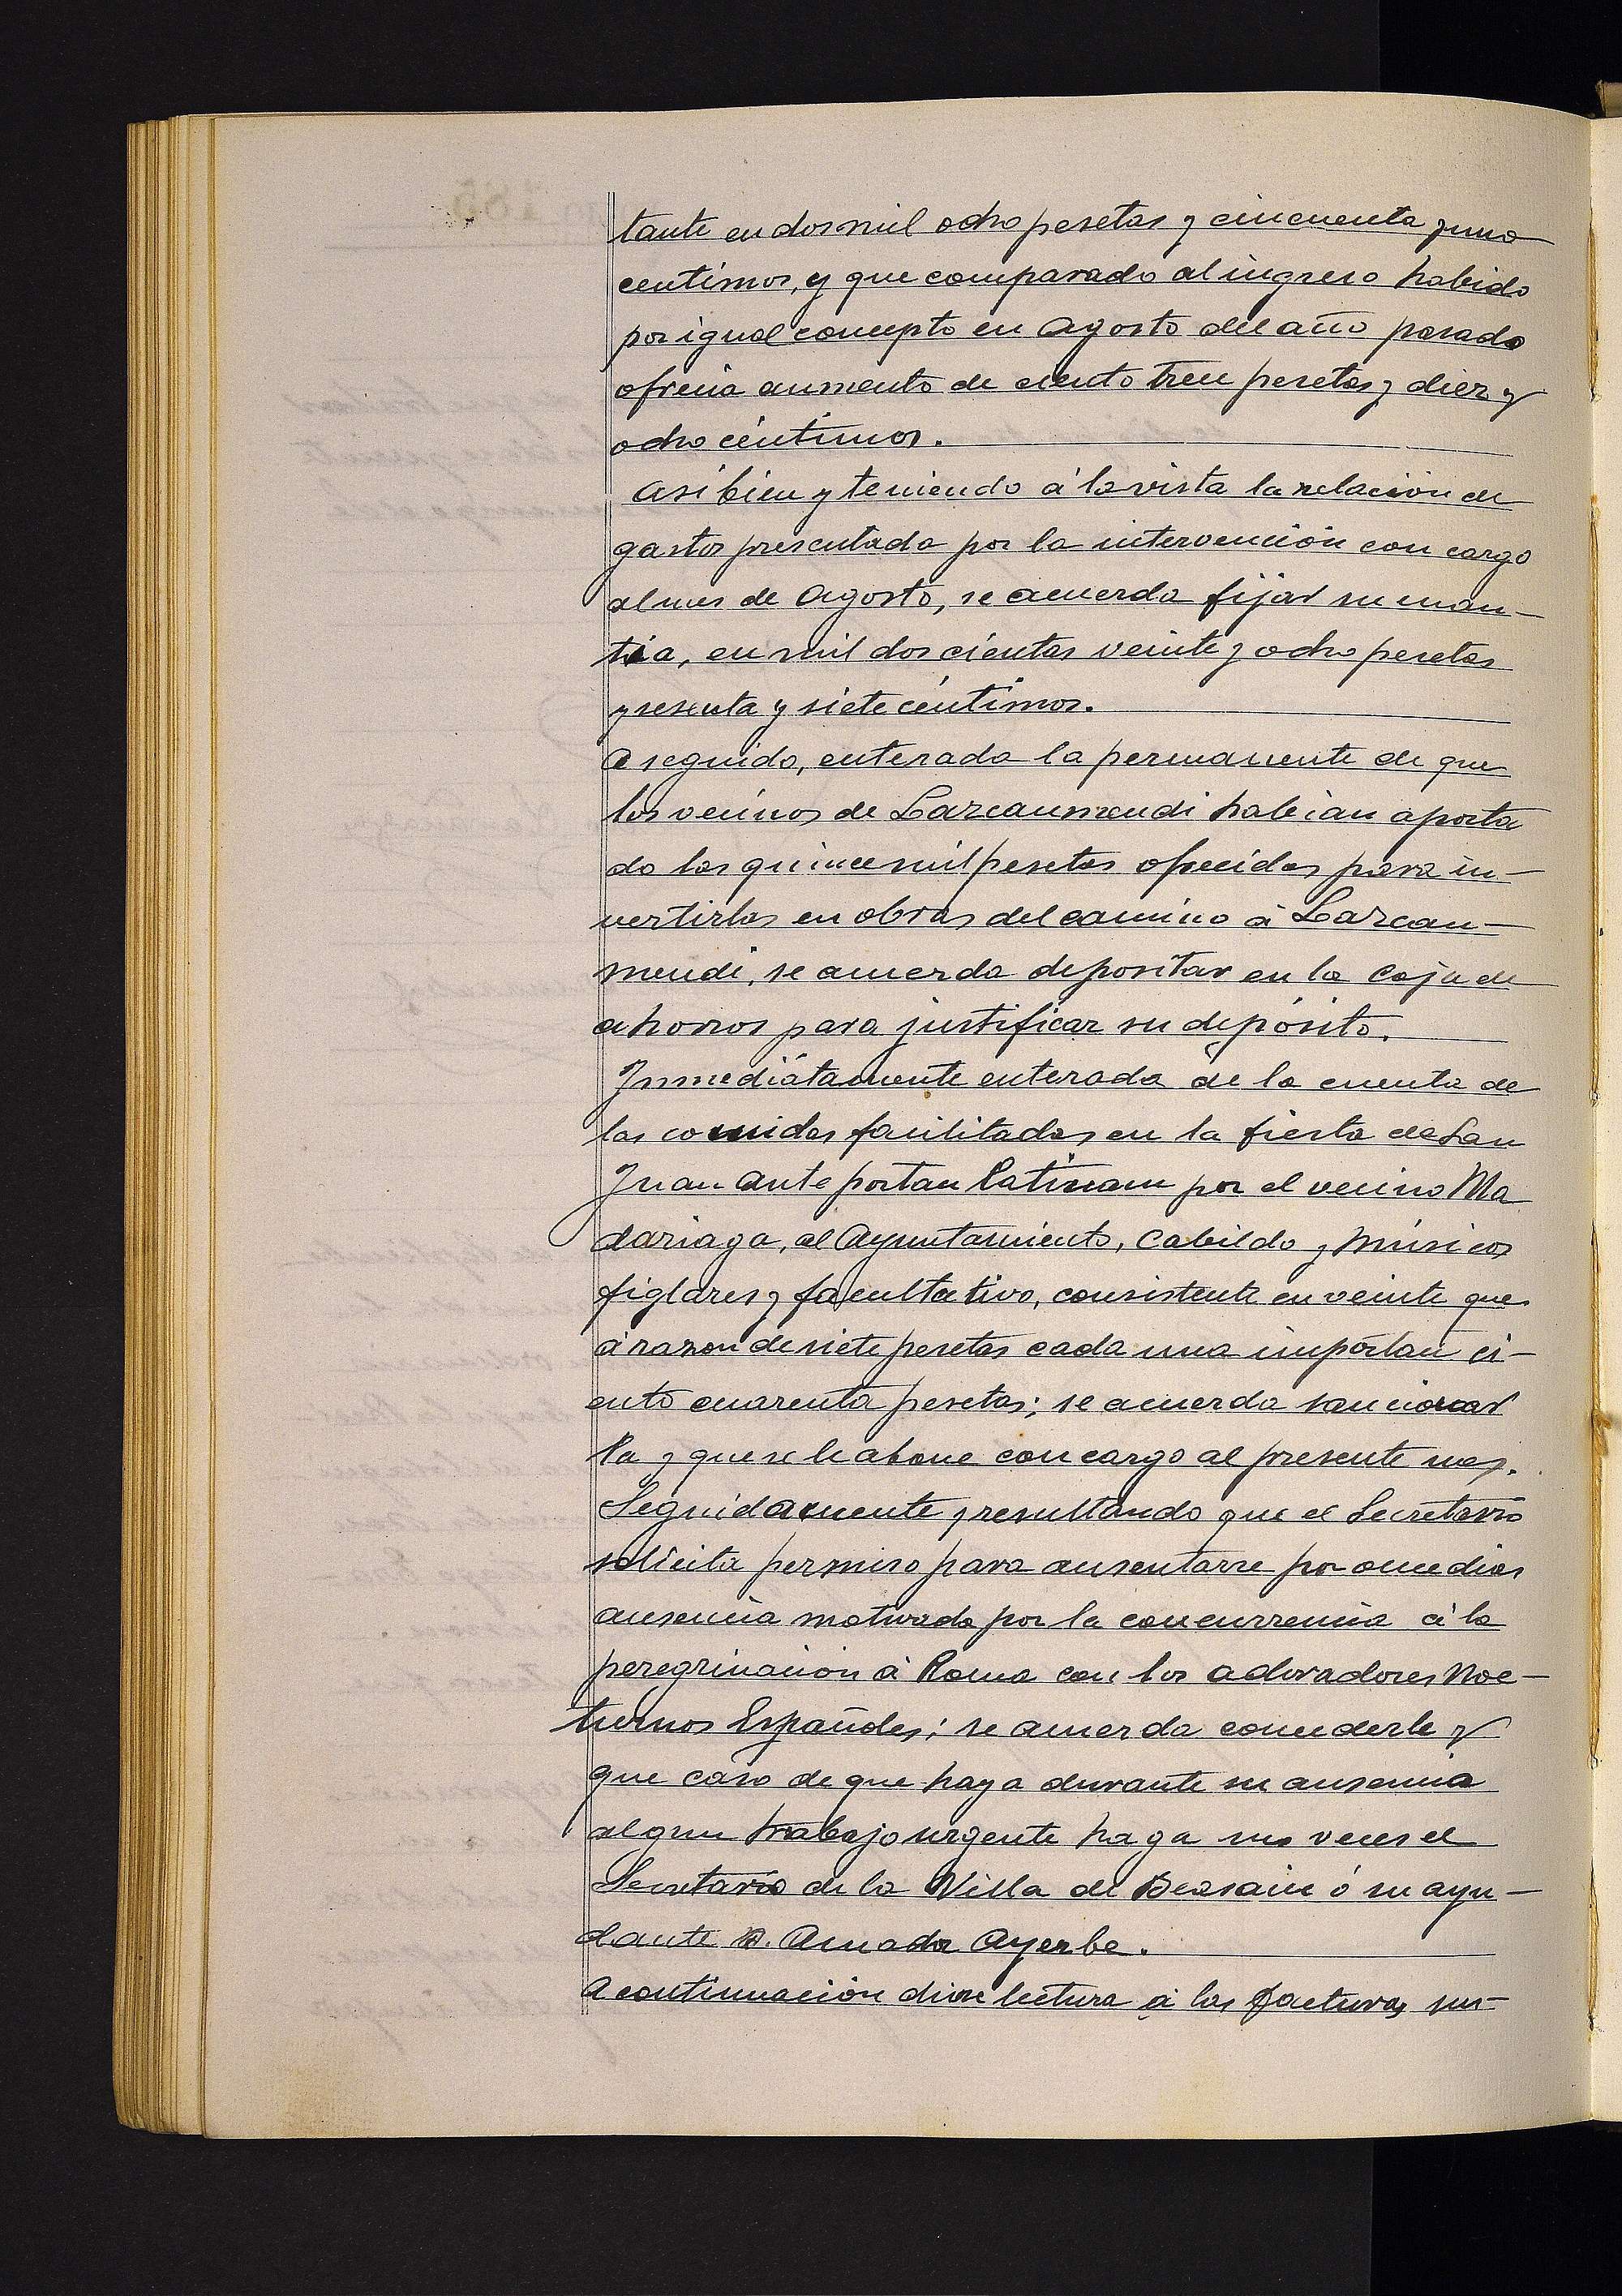 tante en dos mil ocho pesetas y cincuenta y uno
centimos, y que comparado al ingreso habido
por igual concepto en Agosto del año pasado
ofrecia aumento de ciento trece pesetas y diez y
ocho céntimos.
Asi bien y teniendo á la vista la relacion de
gastos presentada por la intervención con cargo
al mes de Agosto, se acuerda fijar su cuan-
tia, en mil doscientas veinte y ocho pesetas
y sesenta y siete céntimos.
A seguido, enterada la permanente de que
los vecinos de Lazcaumendi habian aporta
do las quince mil pesetas ofrecidas para in-
vertirlas en obras del camino á Lazcau-
mendi, se acuerda depositar en la Caja de
ahorros para justificar su depósito.
Inmediátamente enterada de la cuenta de
las comidas facilitadas en la fiesta de San
Juan Ante portan latinam por el vecino Ma
dariaga, al Ayuntamiento, Cabildo y músicos
figlares y facultativo, consistente en veinte que
á razon de siete pesetas cada una importan ci-
ento cuarenta pesetas; se acuerda sancionar
la y que se le abone con cargo al presente mes.
Seguidamente y resultando que el Secretario
solicita permiso para ausentarse por once dias
ausencia motivada por la concurrencia á la
peregrinación á Roma con los adoradores Noc-
turnos Españoles; se acuerda concederle y
que caso de que haya durante su ausencia
algun trabajo urgente haga sus veces el
Secretario de la Villa de Beasain ó su ayu-
dante D. Amador Ayerbe.
A continuación diose lectura á las facturas sus-